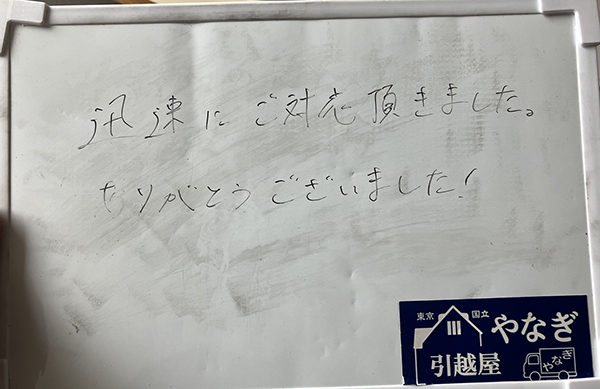 迅速にご対応頂きました。
ありがとうございました!
東京 国立 やなぎ
引越屋 やなぎ